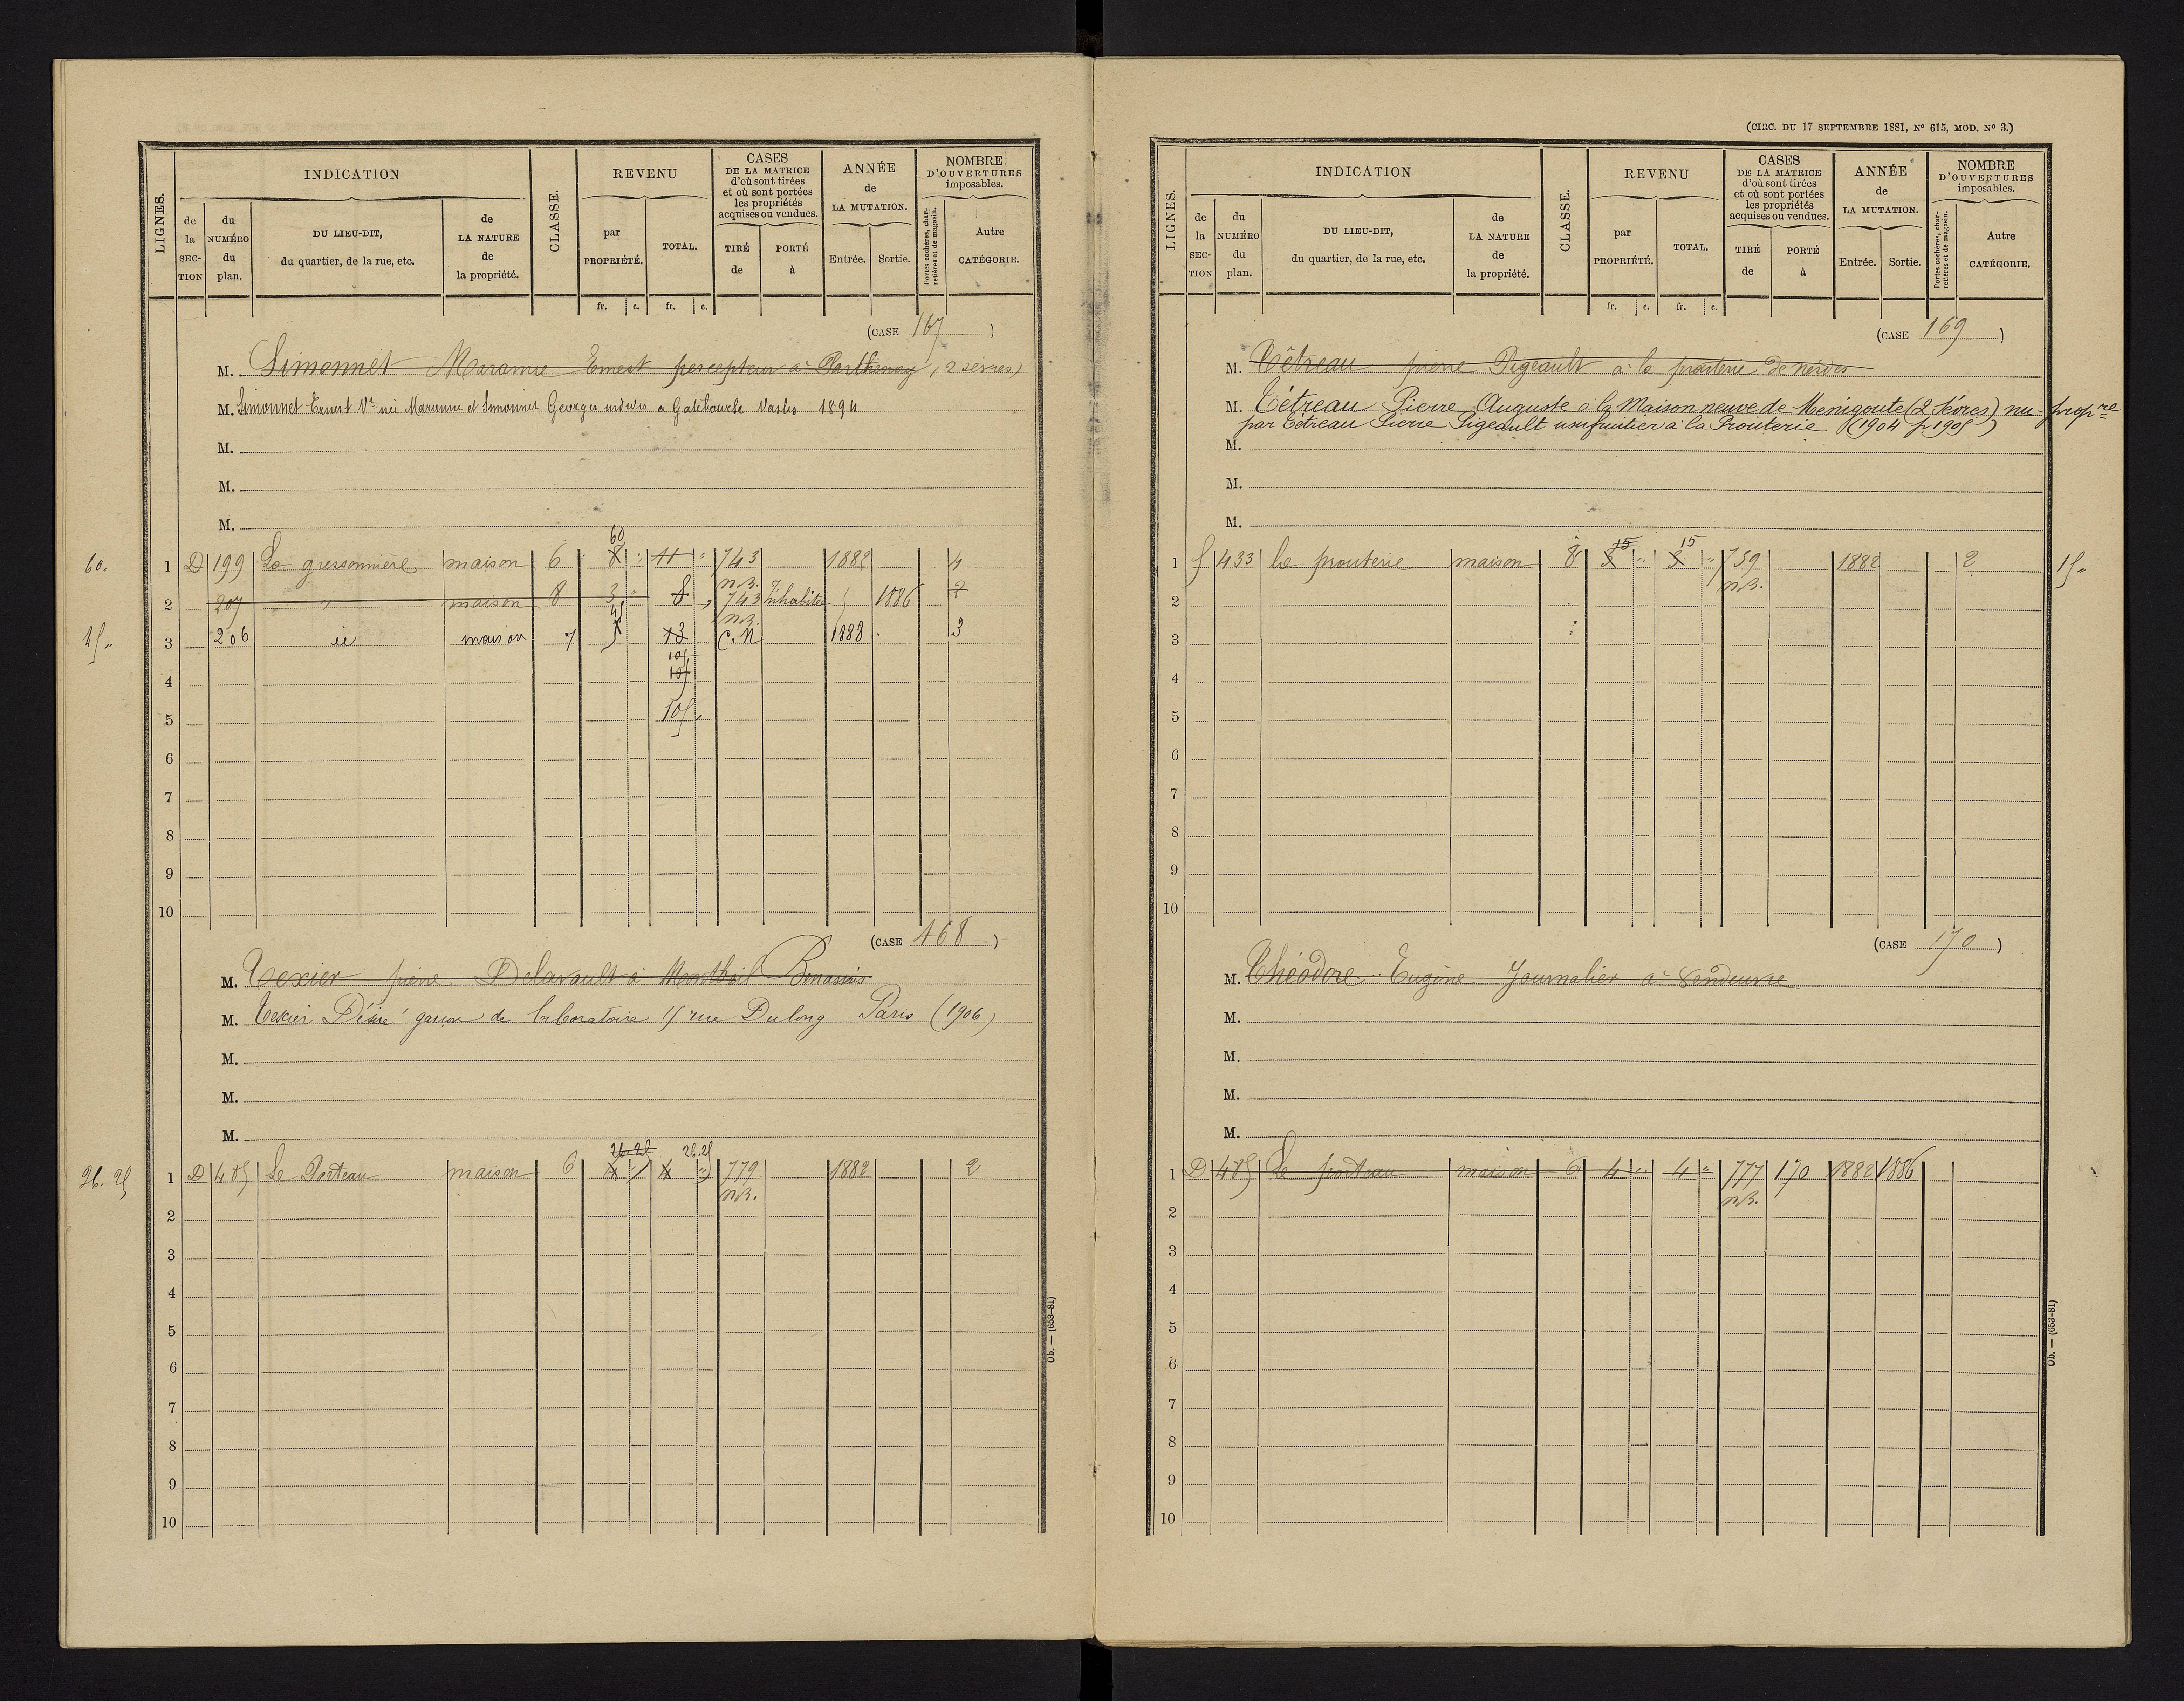 LIGNES.
INDICATION
CLASSE.
REVENU
CASES
DE LA MATRICE
d'où sont tirées
et où sont portées
les propriétés
acquises ou vendues.
ANNÉE
de
LA MUTATION.
NOMBRE
D'OUVERTURES
imposables.
de la SECTION
du NUMÉRO du plan.
DU LIEU-DIT,
du quartier, de la rue, etc.
de LA NATURE de la propriété.
par PROPRIÉTÉ.
TOTAL.
TIRÉ de
PORTÉ à
Entrée.
Sortie.
Portes cochères, charretières et de magasin.
Autre CATÉGORIE.
fr. c. fr. c.
(CASE 167)
M. Simonnet Maranne Ernest percepteur à Parthenay (2 sèvres)
M. Simonnet Ernest Ve née Maranne et Simonnet Georges indivis a Gatebourse Vasles 1894
M.
M.
M.
60
60. 1 D 199 La gressonnière maison 6 8 " 11 " 743 1882 4
n.B.
2 207 " maison 8 3 " 8 " 743 inhabitée 1886 2
n.B.
45 " 3 206 id maison 7 5 13 C.N 1888 3
105
4 105
5 105 "
6
7
8
9
10
(CASE 168)
M. Texier pierre Delavault à Montbeil Benassais
M. Texier Désiré garçon de laboratoire 15 rue Dulong Paris (1906)
M.
M.
M.
26.25 26.25
26.25 1 D 485 Le Porteau maison 6 4 " 4 " 779 1882 2
n.B.
2
3
4
5
6
7
8
9
10
Ob. — (653-81)
(CIRC. DU 17 SEPTEMBRE 1881, N° 615, MOD. N° 3.)
LIGNES.
INDICATION
CLASSE.
REVENU
CASES
DE LA MATRICE
d'où sont tirées
et où sont portées
les propriétés
acquises ou vendues.
ANNÉE
de
LA MUTATION.
NOMBRE
D'OUVERTURES
imposables.
de la SECTION
du NUMÉRO du plan.
DU LIEU-DIT,
du quartier, de la rue, etc.
de LA NATURE de la propriété.
par PROPRIÉTÉ.
TOTAL.
TIRÉ de
PORTÉ à
Entrée.
Sortie.
Portes cochères, charretières et de magasin.
Autre CATÉGORIE.
fr. c. fr. c.
(CASE 169)
M. Têtreau pierre Pigeault à la prouterie de
M. Tétreau Pierre Auguste à la Maison neuve de Menigoute (2 Sèvres) nu-propre
par Tétreau Pierre Pigeault usufruitier à la Prouterie (1904 p 1905)
M.
M.
M.
15 15
1 f 433 la prouterie maison 8 3 " 3 " 759 1882 2 15 "
n.B.
2
3
4
5
6
7
8
9
10
(CASE 170)
M. Théodore Eugène Journalier à Vendeuvre
M.
M.
M.
M.
1 D 485 Le porteau maison 6 4 " 4 " 777 170 1882 1886
n.B.
2
3
4
5
6
7
8
9
10
Ob. — (653-81)